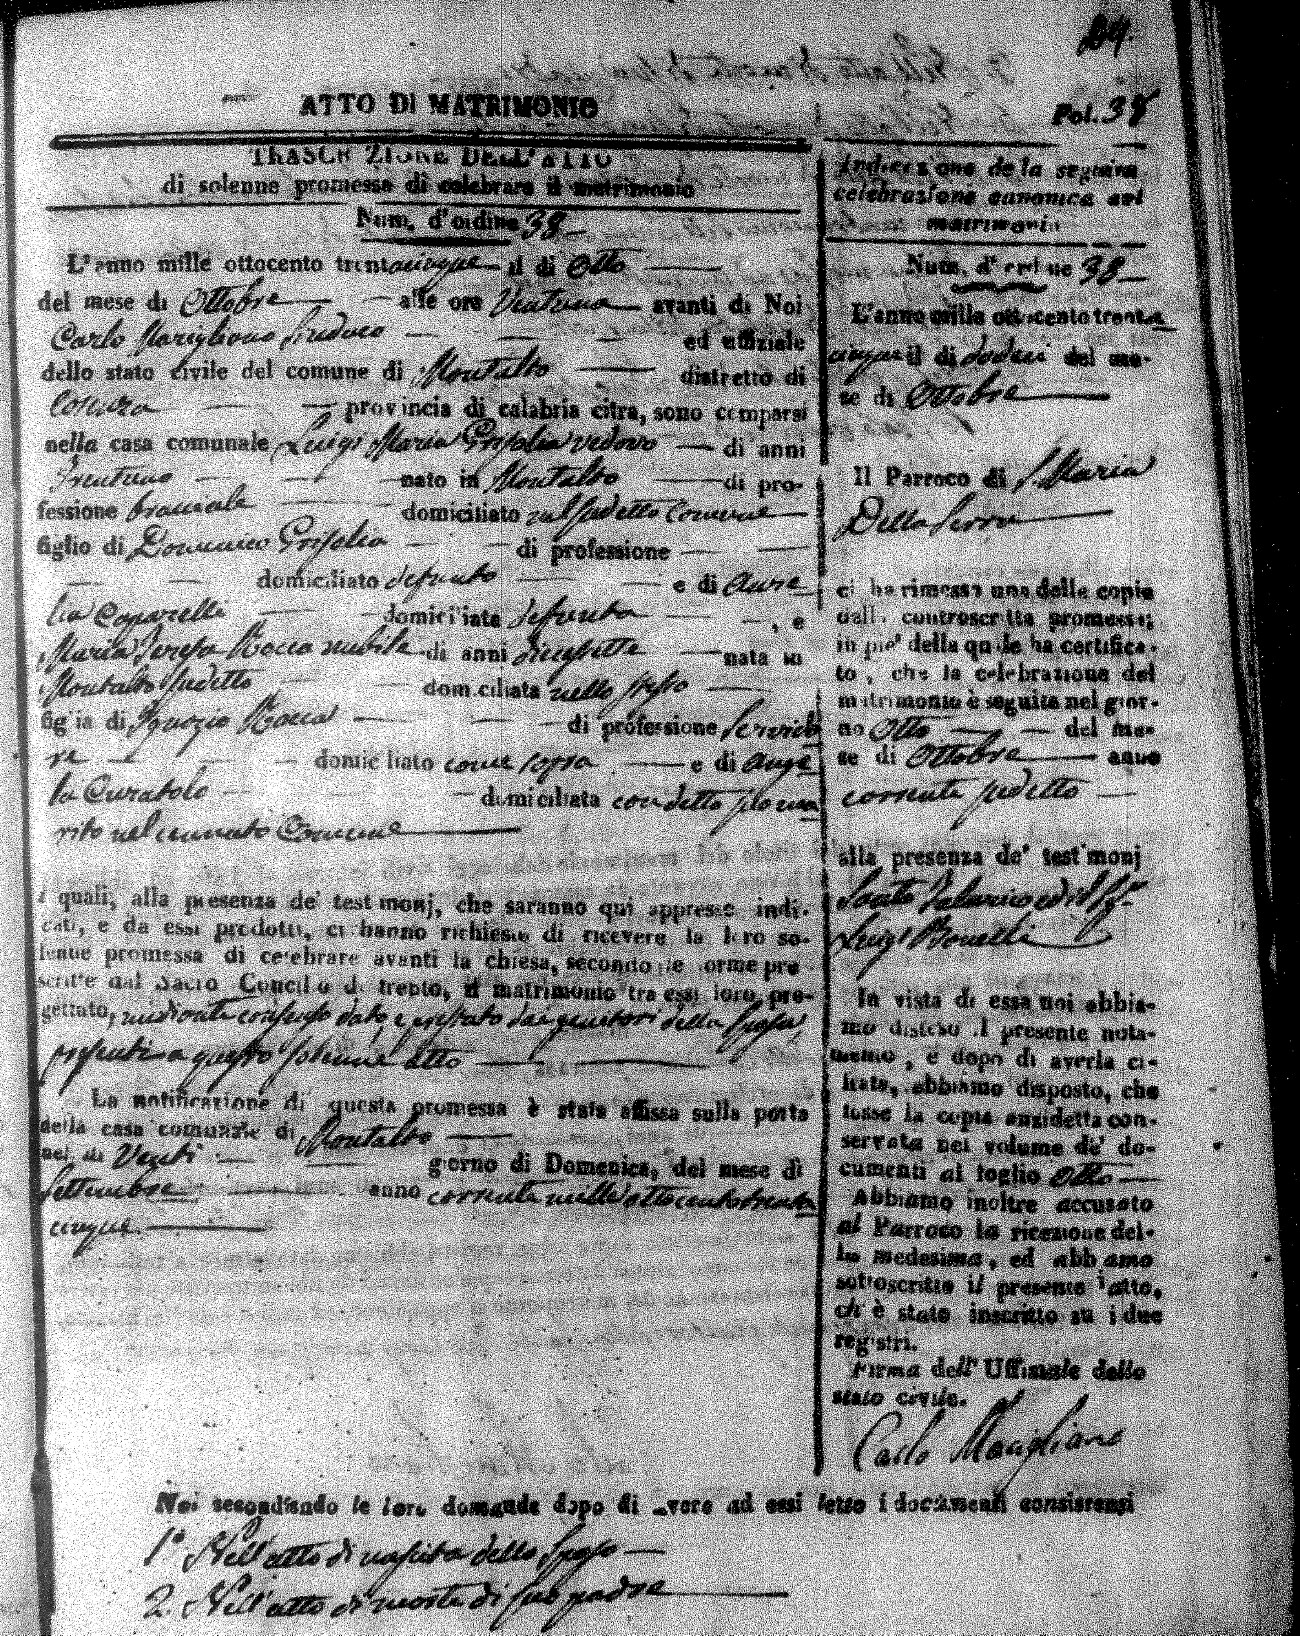 ATTO DI MATRIMONIO
Fol. 38
TRASCRIZIONE DELL'ATTO
di solenne promessa di celebrare il matrimonio
Num. d'ordine 38
L'anno mille ottocento trentacinque il dì Otto
del mese di Ottobre alle ore Ventuna avanti di Noi
Carlo Marigliano Sindaco ed uffiziale
dello stato civile del comune di Montalto distretto di
Cosenza provincia di calabria citra, sono comparsi
nella casa comunale Luigi Maria Grisolia vedovo di anni
Trentuno nato in Montalto di pro-
fessione bracciale domiciliato nel sudetto Comune
figlio di Domenico Grisolia di professione
domiciliato defunto e di Aure
lia Caparelli domiciliata defunta , e
Maria Teresa Rocca nubile di anni diecisette nata in
Montalto sudetto domiciliata nello stesso
figlia di Ignazio Rocca di professione Servido
re domiciliato come sopra e di Ange
la Curatolo domiciliata con detto suo ma
rito nel cennato Comune
i quali, alla presenza de' testimonj, che saranno qui appresso indi-
cati, e da essi prodotti, ci hanno richiesto di ricevere la loro so-
lenne promessa di celebrare avanti la chiesa, secondo le forme pre
scritte dal Sacro Concilio di trento, il matrimonio tra essi loro pro-
gettato, mediante consenso dato, e prestato dai genitori della sposa
presenti a questo solenne atto
La notificazione di questa promessa è stata affissa sulla porta
della casa comunale di Montalto
nel dì Venti giorno di Domenica, del mese di
Settembre anno corrente mille ottocentotrenta
cinque
Indicazione de la seguita
celebrazione canonica del
matrimonio
Num. d'ordine 38
L'anno mille ottocento trenta
cinque il dì dodeci del me-
se di Ottobre
Il Parroco di S. Maria
Della Serra
ci ha rimessa una delle copie
dalla controscritta promessa;
in piè della quale ha certifica-
to, che la celebrazione del
matrimonio è seguita nel gior-
no Otto del me-
se di Ottobre anno
corrente sudetto
alla presenza de' testimonj
Luigi Bonelli
In vista di essa noi abbia-
mo disteso il presente nota-
mento, e dopo di averla ci-
frata, abbiamo disposto, che
fosse la copia anzidetta con-
servata nel volume de' do-
cumenti al foglio Otto
Abbiamo inoltre accusato
al Parroco la ricezione del-
la medesima, ed abbiamo
sottoscritto il presente atto,
ch'è stato inscritto su i due
registri.
Firma dell'Uffiziale dello
stato civile.
Carlo Marigliano
Noi secondando le loro domande dopo di avere ad essi letto i documenti consistenti
1° Nell'atto di nascita dello sposo
2. Nell'atto di morte di suo padre